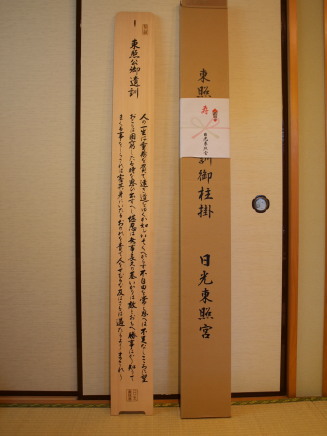 東照公御遺訓
人の一生は重荷を負て遠き道をゆくか如しいそくへからす不自由を常と思へは不足なしこころに望
おこらは困窮したる時を思ひ出すへし堪忍は無事長久の基いかりは敵とおもへ勝事はかり知りて
まくる事をしらされは害其身にいたるおのれを責て人をせむるな及はさるは過たるよりまされり
東照
訓御柱掛 日光東照宮
寿
日光東照宮